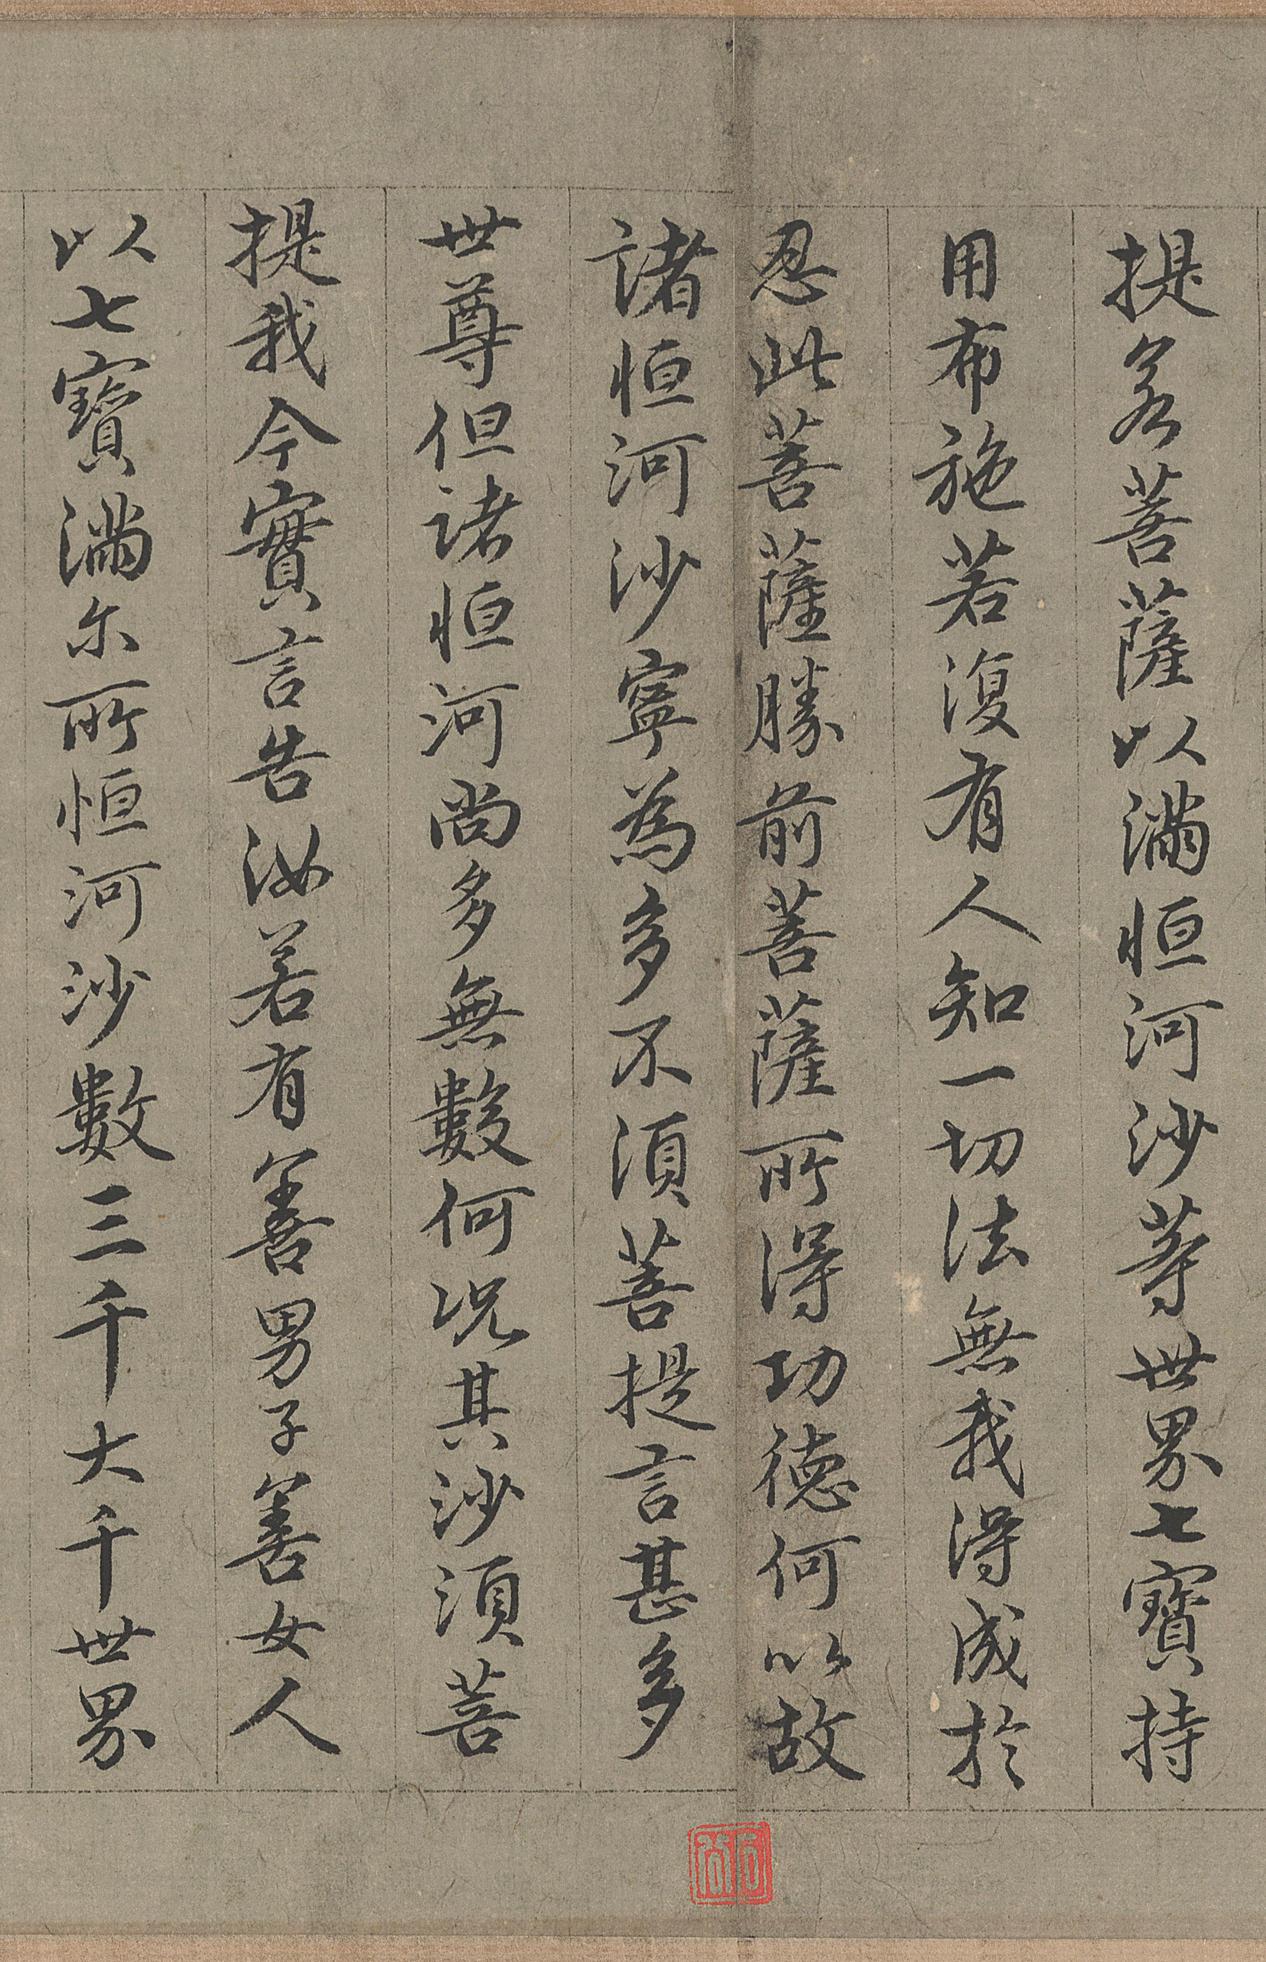 提若菩薩以滿恒河沙等世界七寶持
用布施若復有人知一切法無我得成於
忍此菩薩勝前菩薩所得功德何以故
諸恒河沙寧為多不須菩提言甚多
世尊但諸恒河尚多無數何況其沙須菩
提我今實言告汝若有善男子善女人
以七寶滿尓所恒河沙數三千大千世界